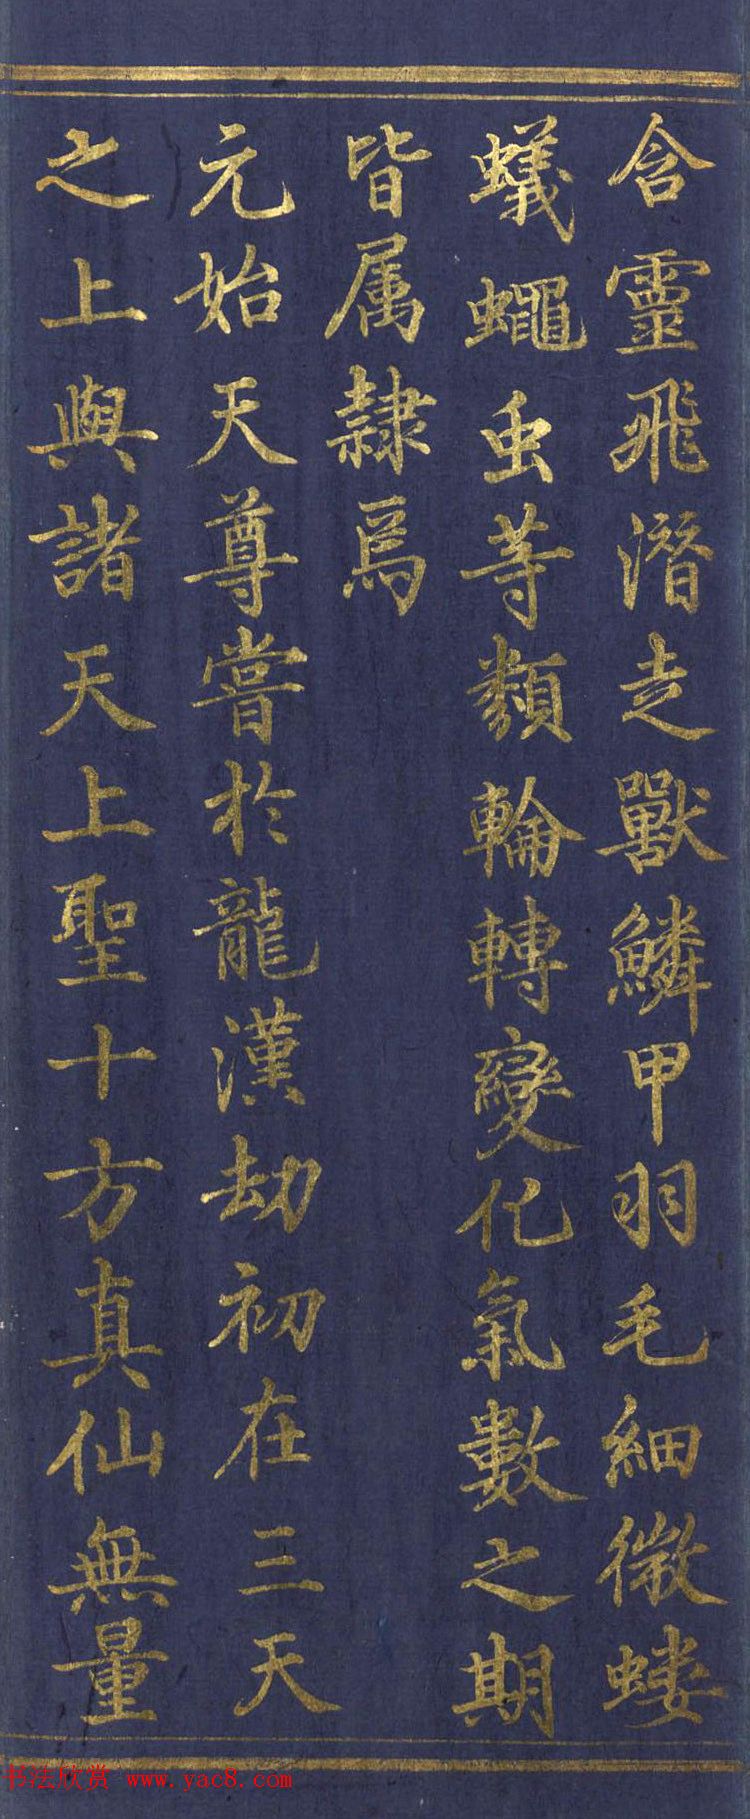 含靈飛潛走獸鱗甲羽毛細微螻
蟻蠅虫等類輪轉變化氣數之期
皆属隷焉
元始天尊嘗於龍漢劫初在三天
之上與諸天上聖十方真仙無量
书法欣赏 www.yac8.com